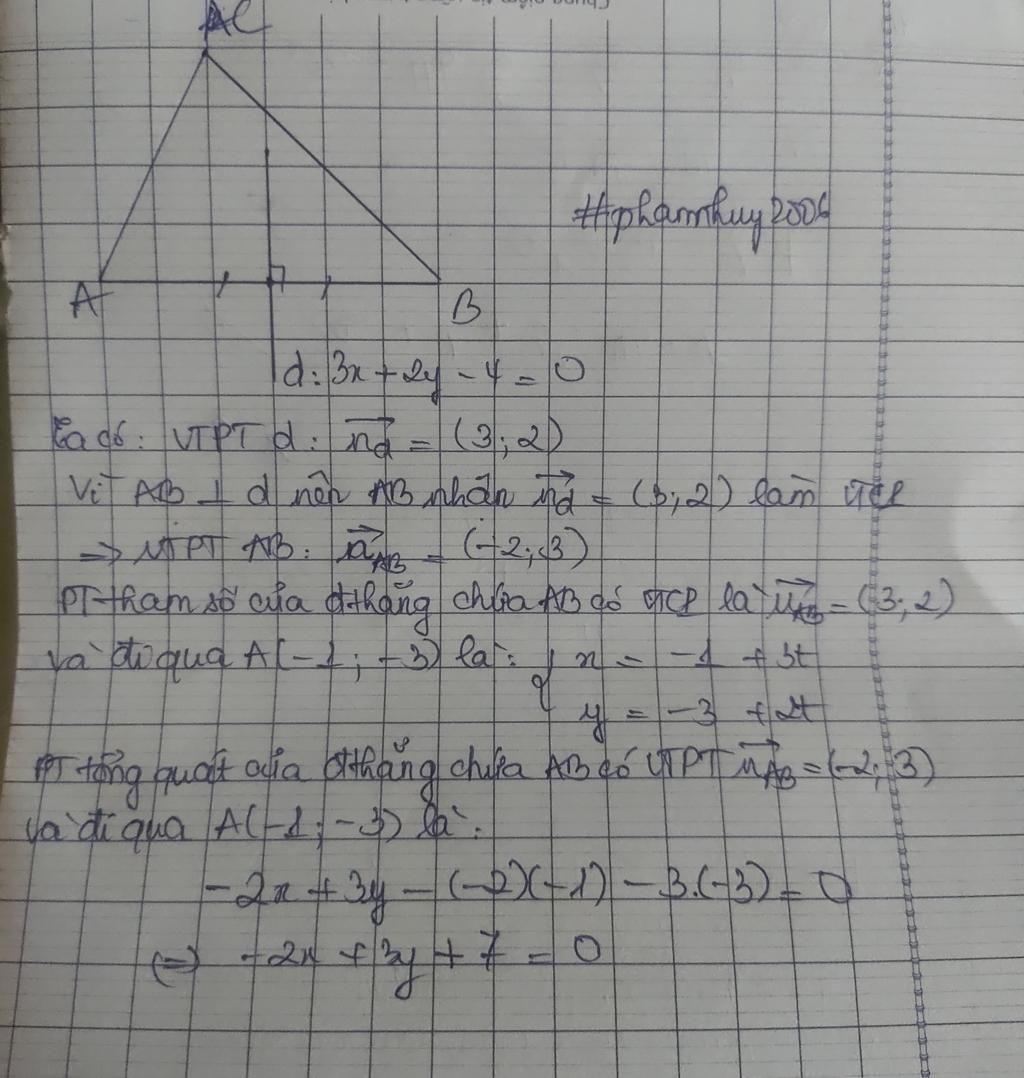 C
#phamhuy2006
A
B
d: 3x + 2y - 4 = 0
Ta có: VTPT d: n_d = (3; 2)
Vì AB ⊥ d nên AB nhận n_d = (3; 2) làm VTCP
=> VTPT AB: n_AB = (-2; 3)
PT tham số của đthẳng chứa AB có VTCP là u_AB = (3; 2)
và đi qua A(-1; -3) là: { x = -1 + 3t
y = -3 + 2t
PT tổng quát của đthẳng chứa AB có VTPT n_AB = (-2; 3)
và đi qua A(-1; -3) là:
-2x + 3y - (-2)(-1) - 3.(-3) = 0
(=) -2x + 3y + 7 = 0